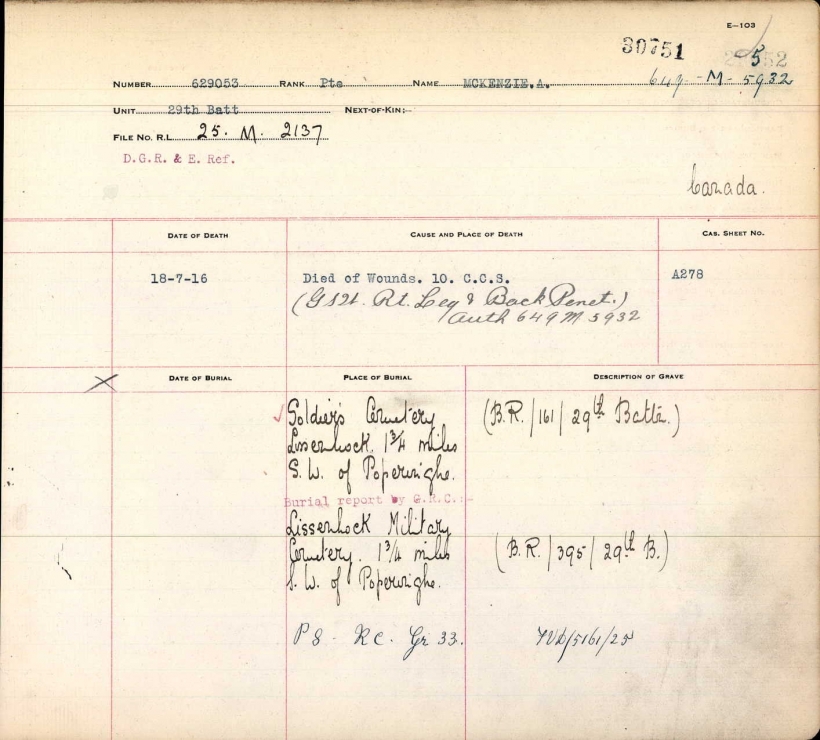 E—103
30751
5
NUMBER 629053 RANK Pte NAME MCKENZIE.A. 649 - M - 5932
UNIT 29th Batt NEXT-OF-KIN:—
FILE NO. R.L. 25. M. 2137
D.G.R. & E. Ref.
Canada.
DATE OF DEATH CAUSE AND PLACE OF DEATH CAS. SHEET NO.
18-7-16 Died of Wounds. 10. C.C.S. A278
(GSW. Rt. Leg & Back Penet.)
Auth 649 M 5932
DATE OF BURIAL PLACE OF BURIAL DESCRIPTION OF GRAVE
Soldier's Cemetery (B.R./161/29th Battn.)
Lissenhock. 1¾ miles
S.W. of Poperinghe.
Burial report by G.R.C.:-
Lissenhock Military
Cemetery. 1¾ miles (B.R./395/29th B.)
S.W. of Poperinghe.
P 8 - R C. Gr 33. /5161/25